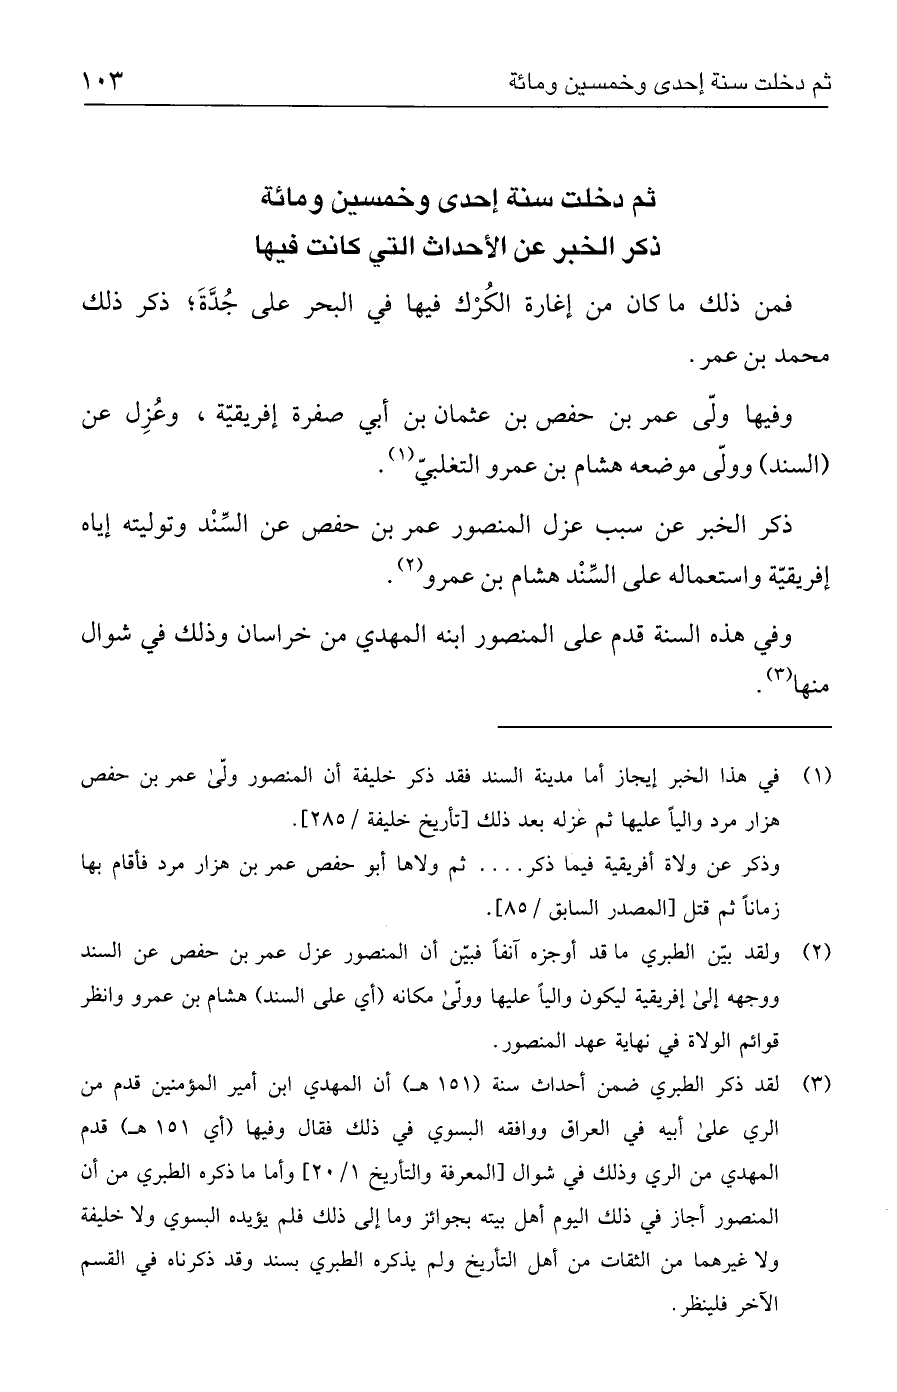 ثم دخلت سنة إحدى وخمسين ومائة ١٠٣
ثم دخلت سنة إحدى وخمسين ومائة
ذكر الخبر عن الأحداث التي كانت فيها
فمن ذلك ما كان من إغارة الكُرْك فيها في البحر على جُدَّةَ؛ ذكر ذلك
محمد بن عمر.
وفيها ولّى عمر بن حفص بن عثمان بن أبي صفرة إفريقيّة، وعُزِل عن
(السند) وولّى موضعه هشام بن عمرو التغلبيّ(١).
ذكر الخبر عن سبب عزل المنصور عمر بن حفص عن السِّنْد وتوليته إياه
إفريقيّة واستعماله على السِّنْد هشام بن عمرو(٢).
وفي هذه السنة قدم على المنصور ابنه المهدي من خراسان وذلك في شوال
منها(٣).
(١) في هذا الخبر إيجاز أما مدينة السند فقد ذكر خليفة أن المنصور ولّىٰ عمر بن حفص
هزار مرد والياً عليها ثم عزله بعد ذلك [تأريخ خليفة / ٢٨٥].
وذكر عن ولاة أفريقية فيما ذكر.... ثم ولاها أبو حفص عمر بن هزار مرد فأقام بها
زماناً ثم قتل [المصدر السابق / ٨٥].
(٢) ولقد بيّن الطبري ما قد أوجزه آنفاً فبيّن أن المنصور عزل عمر بن حفص عن السند
ووجهه إلىٰ إفريقية ليكون والياً عليها وولّىٰ مكانه (أي على السند) هشام بن عمرو وانظر
قوائم الولاة في نهاية عهد المنصور.
(٣) لقد ذكر الطبري ضمن أحداث سنة (١٥١ هـ) أن المهدي ابن أمير المؤمنين قدم من
الري علىٰ أبيه في العراق ووافقه البسوي في ذلك فقال وفيها (أي ١٥١ هـ) قدم
المهدي من الري وذلك في شوال [المعرفة والتأريخ ٢٠/١] وأما ما ذكره الطبري من أن
المنصور أجاز في ذلك اليوم أهل بيته بجوائز وما إلى ذلك فلم يؤيده البسوي ولا خليفة
ولا غيرهما من الثقات من أهل التأريخ ولم يذكره الطبري بسند وقد ذكرناه في القسم
الآخر فلينظر.